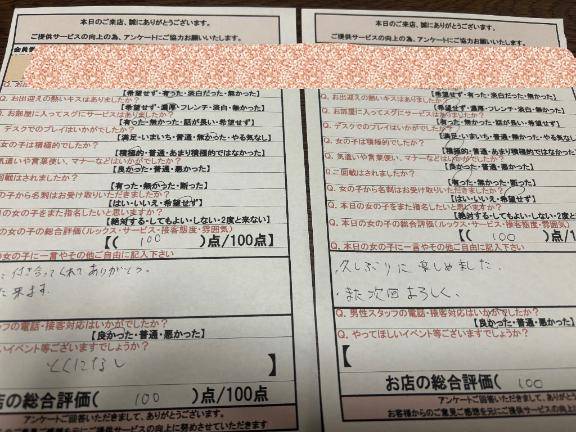 本日のご来店、誠にありがとうございます。
ご提供サービスの向上の為、アンケートにご協力お願いいたします。
【希望せず・有った・淡白だった・無かった】
Q. お出迎えの熱いキスはありましたか?
【希望せず・濃厚・フレンチ・淡白・無かった】
Q. お部屋に入ってスグにサービスはありましたか?
【有った・無かった・話が長い・希望せず】
デスクでのプレイはいかがでしたか?
【満足・いまいち・普通・無かった・やる気なし】
女の子は積極的でしたか?
【積極的・普通・あまり積極的ではなかった】
気遣いや言葉使い、マナーなどはいかがでしたか?
【良かった・普通・悪かった】
回戦はされましたか?
【有った・無かった・断った】
の子から名刺はお受け取りいただきましたか?
【はい・いいえ・希望せず】
の女の子をまた指名したいと思いますか?
【絶対する・してもよい・しない・2度と来ない】
の女の子の総合評価(ルックス・サービス・接客態度・雰囲気)
【( 100 )点/100点】
の女の子に一言やその他ご自由に記入下さい
付き合ってくれてありがとう。
来ます。
ッフの電話・接客対応はいかがでしたか?
【良かった・普通・悪かった】
いイベント等ございますでしょうか?
とくになし
】
店の総合評価( 100 )点/100点】
アンケートご回答いただきまして、ありがとうございます。
ご意見ご感想を元にご提供サービスの向上に努めさせていただきます
本日のご来店、誠にありがとうございます。
ご提供サービスの向上の為、アンケートにご協力お願いいたします。
【希望せず・有った・淡白だった・無かった】
Q. お出迎えの熱いキスはありましたか?
【希望せず・濃厚・フレンチ・淡白・無かった】
Q. お部屋に入ってスグにサービスはありましたか?
【有った・無かった・話が長い・希望せず】
Q. デスクでのプレイはいかがでしたか?
【満足・いまいち・普通・無かった・やる気なし】
Q. 女の子は積極的でしたか?
【積極的・普通・あまり積極的ではなかった】
Q. 気遣いや言葉使い、マナーなどはいかがでしたか?
【良かった・普通・悪かった】
Q. 二回戦はされましたか?
【有った・無かった・断った】
Q. 女の子から名刺はお受け取りいただきましたか?
【はい・いいえ・希望せず】
Q. 本日の女の子をまた指名したいと思いますか?
【絶対する・してもよい・しない・2度と来ない】
Q. 本日の女の子の総合評価(ルックス・サービス・接客態度・雰囲気)
【( 100 )点/100
Q. 本日の女の子に一言やその他ご自由に記入下さい
久しぶりに楽しめました
また次回よろしく、
Q. 男性スタッフの電話・接客対応はいかがでしたか?
【良かった・普通・悪かった】
Q. やってほしいイベント等ございますでしょうか?
【
お店の総合評価( 100
アンケートご回答いただきまして、ありがとうございます。
お客様からのご意見ご感想を元にご提供サービスの向上に